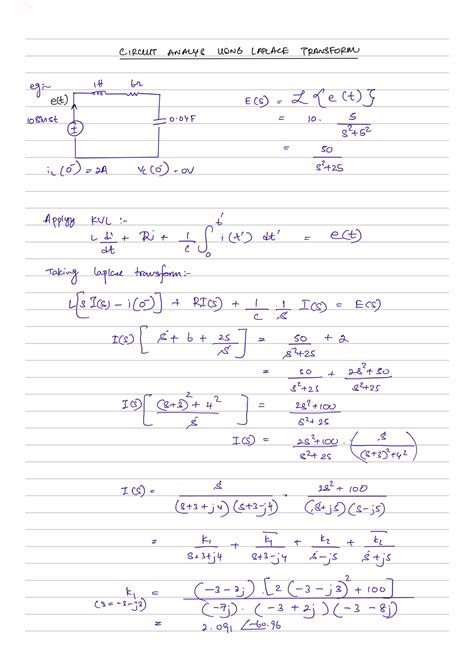 CIRCUIT ANALYS USING LAPLACE TRANSFORM
eg:-
1H 6Ω
e(t)
10 Sin5t
0.04F
i_L(0⁻) = 2A V_c(0⁻) = 0V
E(S) = L{e(t)}
= 10. 5/(s²+5²)
= 50/(s²+25)
Applyy KVL :-
L di/dt + Ri + 1/C ∫₀^t' i(t') dt' = e(t)
Taking laplace transform:-
L[s I(s) - i(0⁻)] + RI(s) + 1/C . 1/s I(s) = E(s)
I(s) [ s + 6 + 25/s ] = 50/(s²+25) + 2
= 50/(s²+25) + (2s²+50)/(s²+25)
I(s) [ ((s+3)² + 4²)/s ] = (2s²+100)/(s²+25)
I(s) = (2s²+100)/(s²+25) . ( s/((s+3)²+4²) )
I(s) = s/((s+3+j4)(s+3-j4)) . (2s² + 100)/((s+j5)(s-j5))
= k₁/(s+3+j4) + k̅₁/(s+3-j4) + k₂/(s-j5) + k̅₂/(s+j5)
k₁ = (-3-3j) . [2(-3-j3)² + 100] / ((-7j) . (-3+2j)(-3-8j))
(s=-3-j3)
= 2.091 ∠-60.96